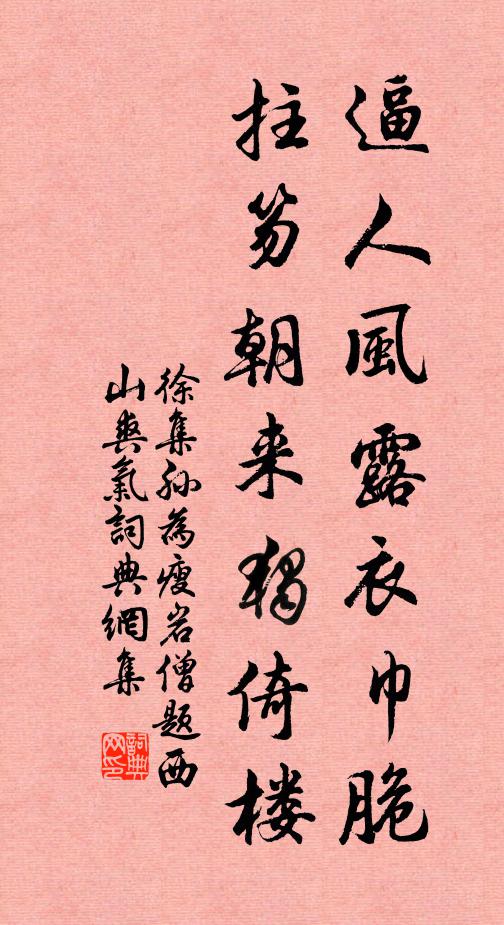 逼人風露衣巾脆
拄笏朝来獨倚楼
徐集孙為瘦岩僧題西
山爽氣詞典網集
詞典
网印